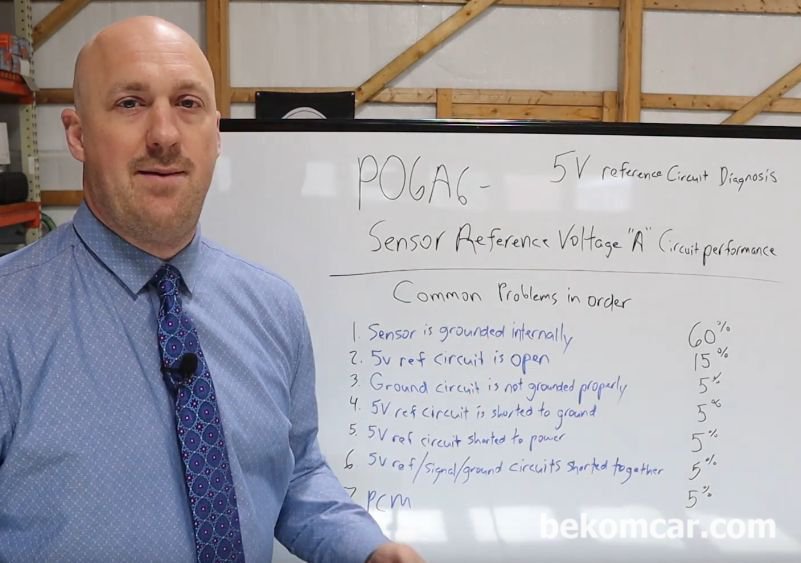 P06A6 - 5V reference Circuit Diagnosis
Sensor Reference Voltage "A" Circuit performance
Common Problems in order
1. Sensor is grounded internally 60%
2. 5v ref circuit is open 15%
3. Ground circuit is not grounded properly 5%
4. 5V ref circuit is shorted to ground 5%
5. 5V ref circuit shorted to power 5%
6. 5V ref/signal/ground circuits shorted together 5%
7. PCM 5%
bekomcar.com